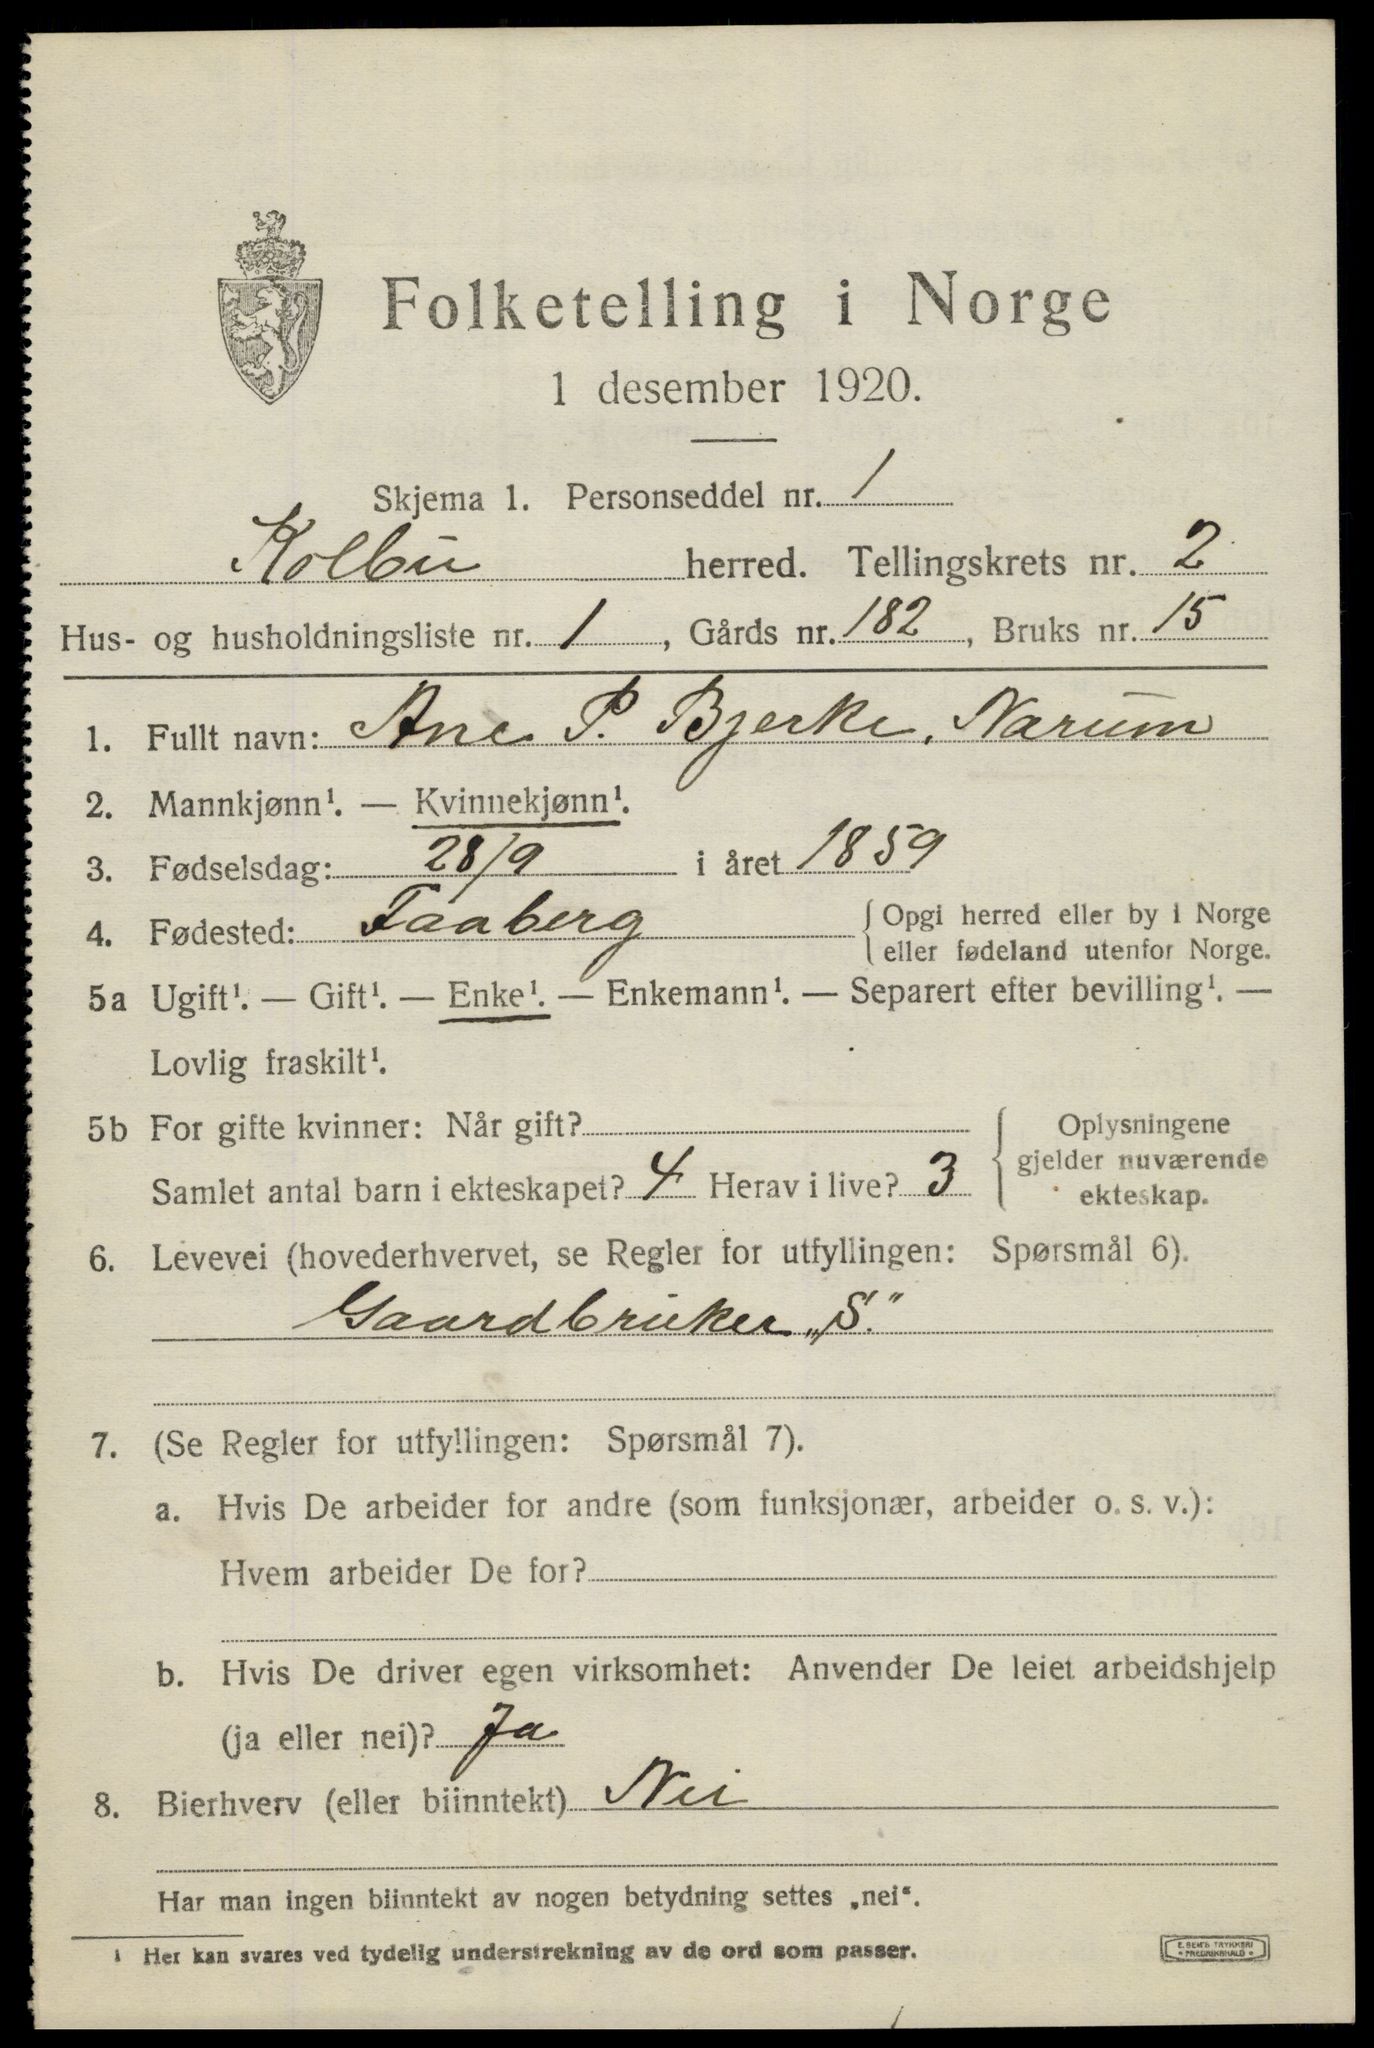 Folketelling i Norge
1 desember 1920.
Skjema 1. Personseddel nr. 1
Kolbu herred. Tellingskrets nr. 2
Hus- og husholdningsliste nr. 1, Gårds nr. 182, Bruks nr. 15
1. Fullt navn: Ane P. Bjerke, Narum
2. Mannkjønn¹. — Kvinnekjønn¹.
3. Fødselsdag: 28/9 i året 1859
4. Fødested: Faaberg { Opgi herred eller by i Norge
eller fødeland utenfor Norge.
5a Ugift¹. — Gift¹. — Enke¹. — Enkemann¹. — Separert efter bevilling¹. —
Lovlig fraskilt¹.
5b For gifte kvinner: Når gift?
Samlet antal barn i ekteskapet? 4 Herav i live? 3
{ Oplysningene
gjelder nuværende
ekteskap.
6. Levevei (hovederhvervet, se Regler for utfyllingen: Spørsmål 6).
Gaardbruker „S."
7. (Se Regler for utfyllingen: Spørsmål 7).
a. Hvis De arbeider for andre (som funksjonær, arbeider o. s. v.):
Hvem arbeider De for?
b. Hvis De driver egen virksomhet: Anvender De leiet arbeidshjelp
(ja eller nei)? Ja
8. Bierhverv (eller biinntekt) Nei
Har man ingen biinntekt av nogen betydning settes „nei“.
¹ Her kan svares ved tydelig understrekning av de ord som passer.
E. SEM'S TRYKKERI
• FREDRIKSHALD •